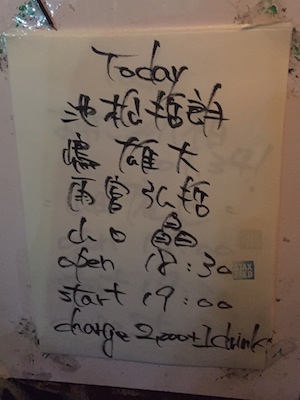 Today
雄大
雨宮弘哲
山口 晶
open 18:30
start 19:00
charge 2,000+1drink